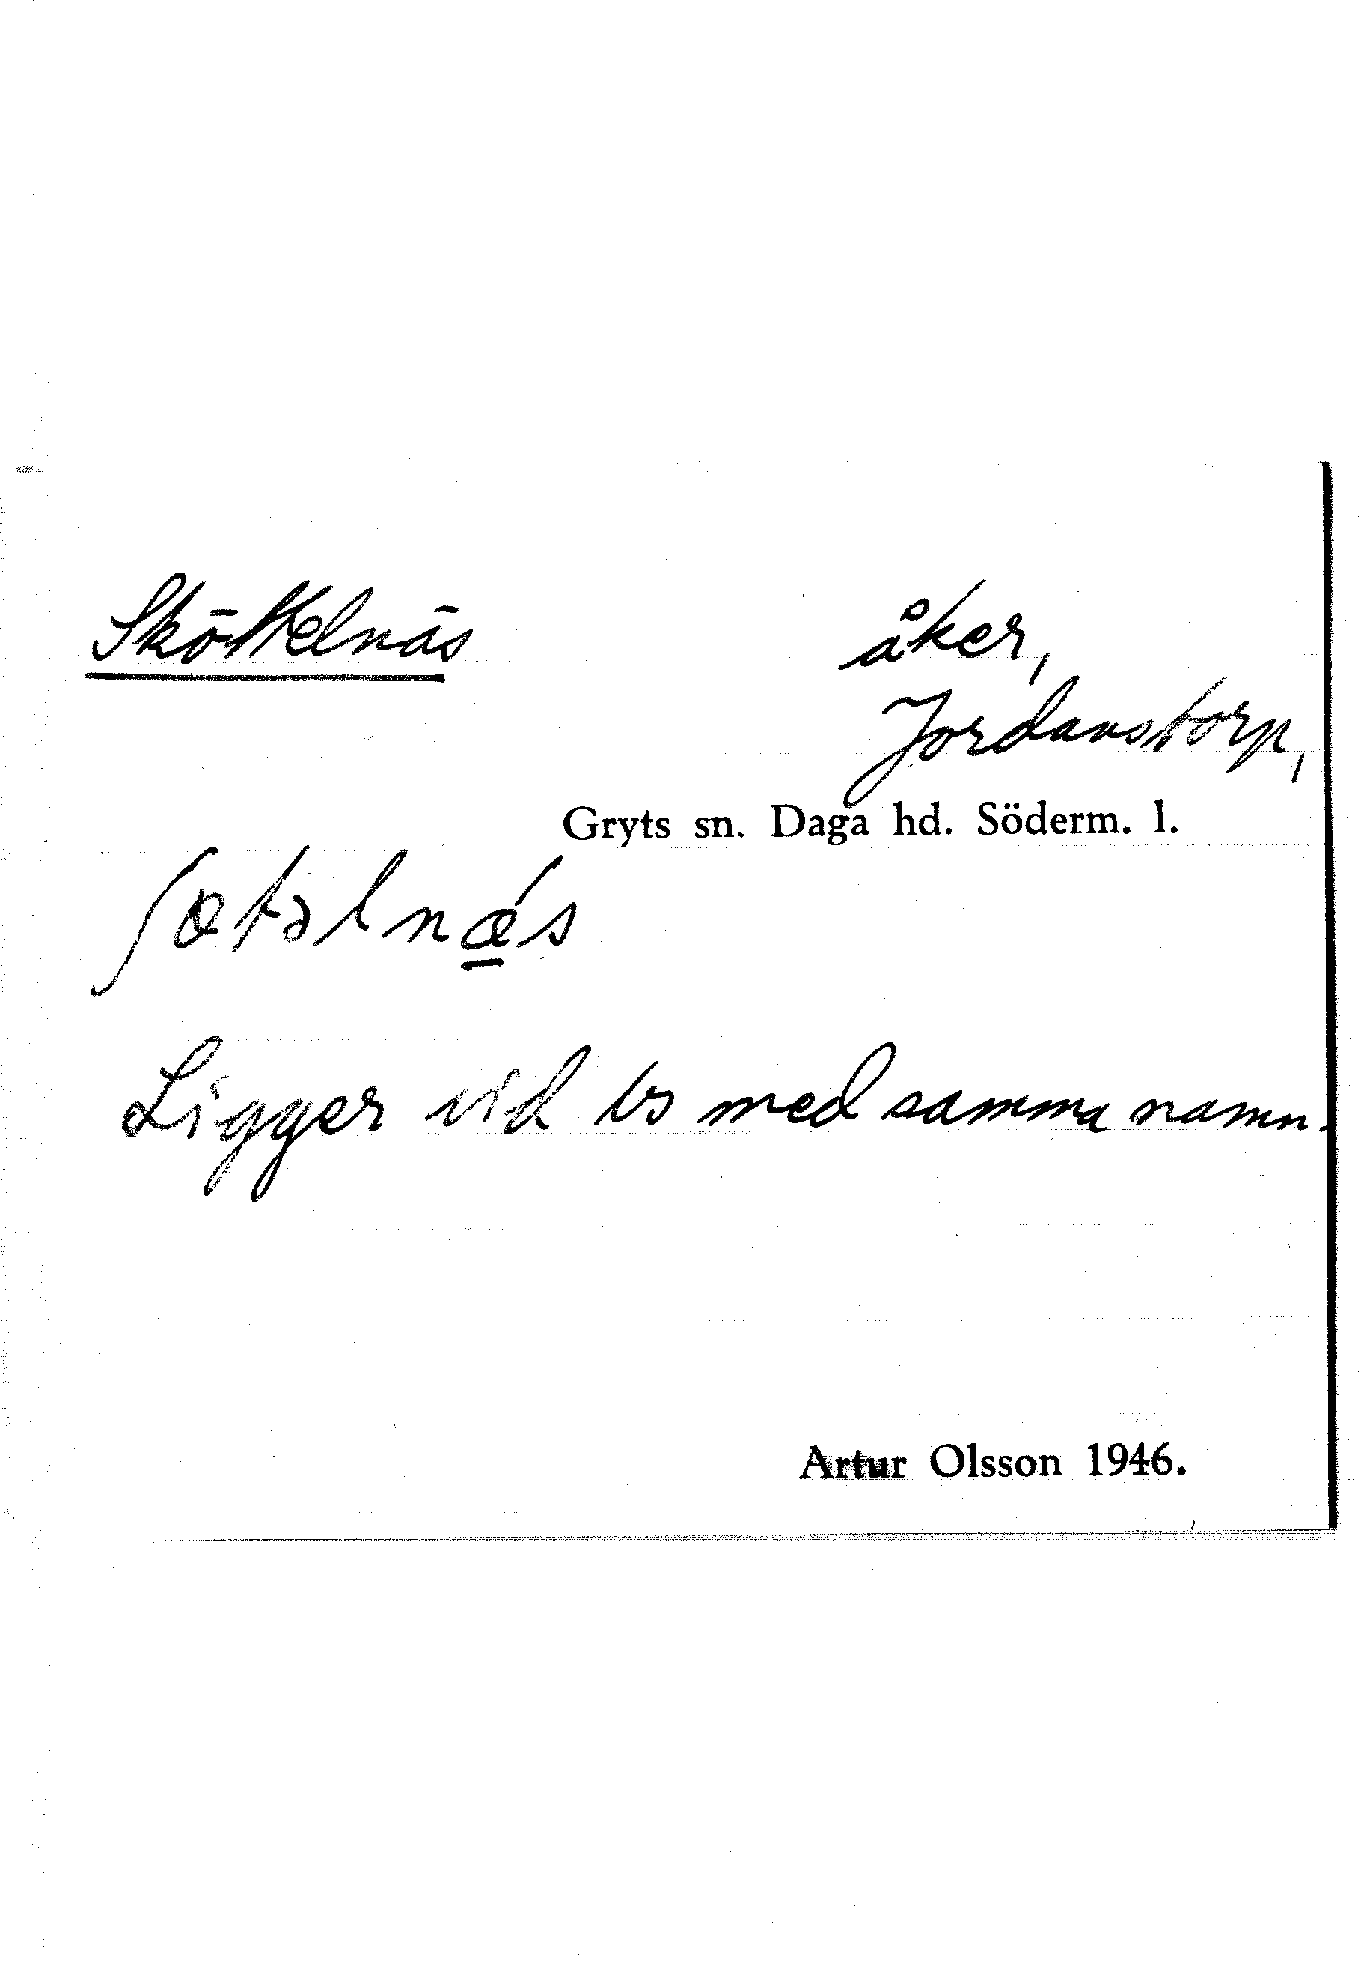 Sköttelnäs
åker,
Jordanstorp,
Gryts sn. Daga hd. Söderm. l.
ʃøtəlnæ̠´s
Ligger vid ts med samma namn.
Artur Olsson 1946.